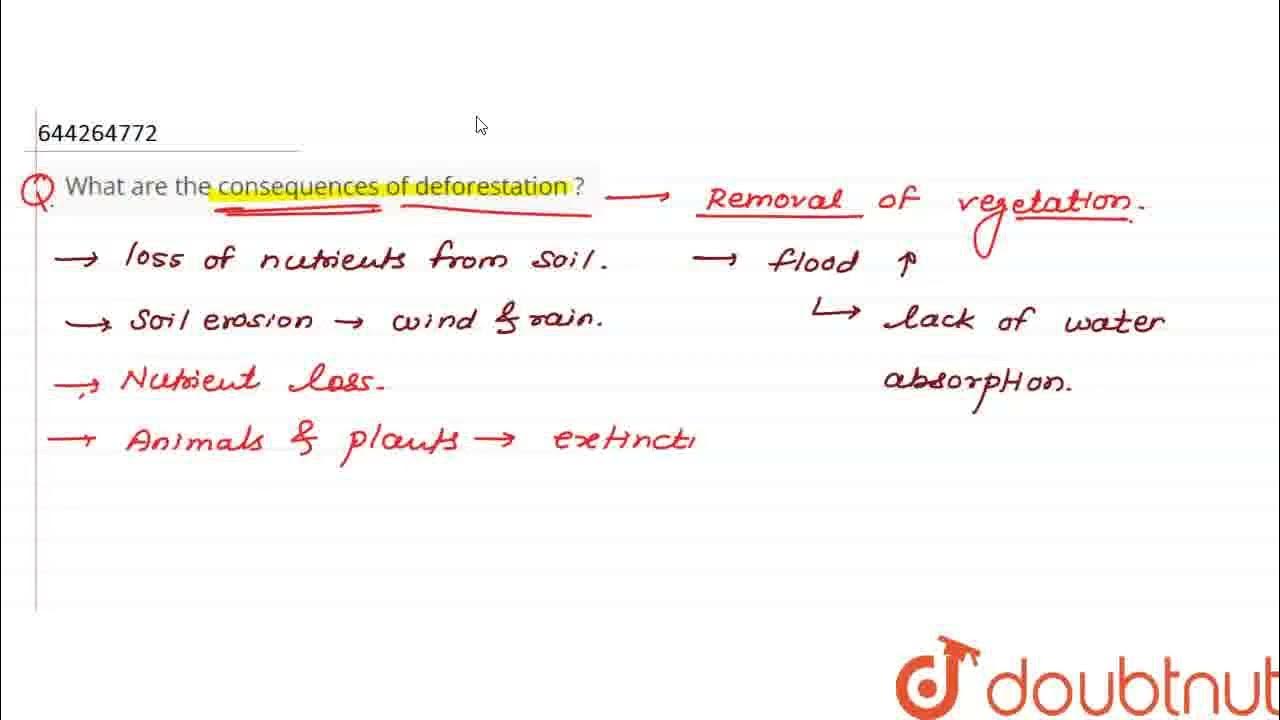 644264772
Q. What are the consequences of deforestation ? → Removal of vegetation.
→ loss of nutrients from soil.
→ Soil erosion → wind & rain.
→ Nutrient loss.
→ Animals & plants → extincti
→ flood ↑
↳ lack of water
absorption.
doubtnut